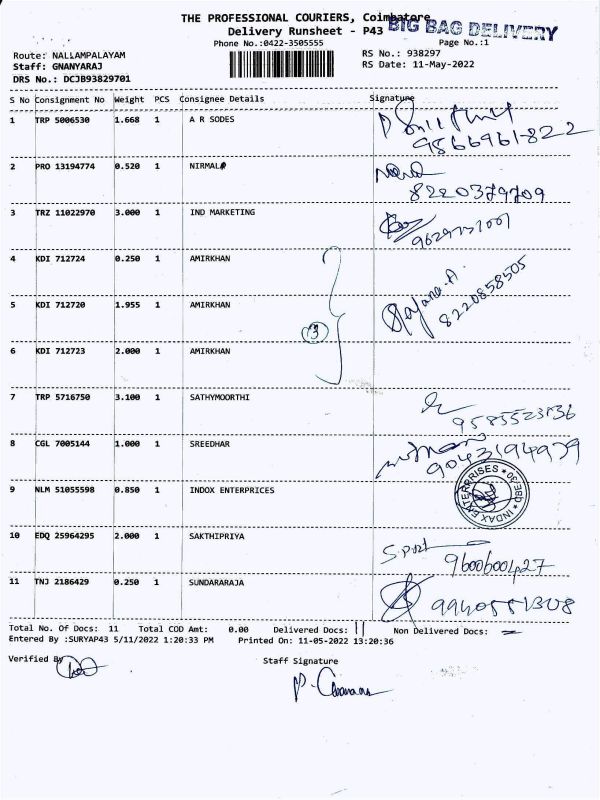 THE PROFESSIONAL COURIERS, Coimbatore
BIG BAG DELIVERY
Delivery Runsheet - P43
Phone No.:0422-3505555
Page No.:1
Route: NALLAMPALAYAM
RS No.: 938297
Staff: GNANYARAJ
RS Date: 11-May-2022
DRS No.: DCJB93829701
S No Consignment No Weight PCS Consignee Details Signature
1 TRP 5006530 1.668 1 A R SODES
9566961822
2 PRO 13194774 0.520 1 NIRMALA
8220379709
3 TRZ 11022970 3.000 1 IND MARKETING
4 KDI 712724 0.250 1 AMIRKHAN
5 KDI 712720 1.955 1 AMIRKHAN
8220858505
3
6 KDI 712723 2.000 1 AMIRKHAN
7 TRP 5716750 3.100 1 SATHYMOORTHI
8 CGL 7005144 1.000 1 SREEDHAR
9043194979
9 NLM 51055598 0.850 1 INDOX ENTERPRICES
INDAX ENTERPRISES
10 EDQ 25964295 2.000 1 SAKTHIPRIYA
9600600427
11 TNJ 2186429 0.250 1 SUNDARARAJA
Total No. Of Docs: 11 Total COD Amt: 0.00 Delivered Docs: 11 Non Delivered Docs: -
Entered By :SURYAP43 5/11/2022 1:20:33 PM Printed On: 11-05-2022 13:20:36
Verified By
Staff Signature